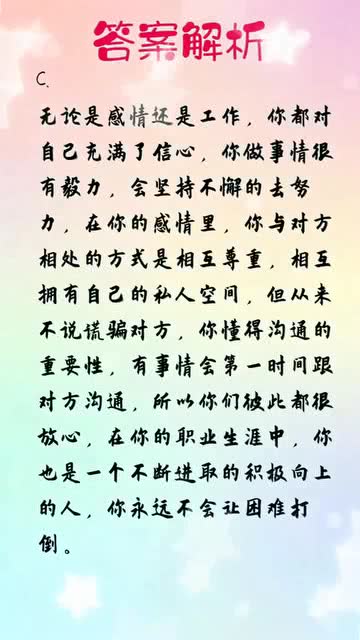 答案解析
C.
无论是感情还是工作，你都对
自己充满了信心，你做事情很
有毅力，会坚持不懈的去努
力，在你的感情里，你与对方
相处的方式是相互尊重，相互
拥有自己的私人空间，但从来
不说谎骗对方，你懂得沟通的
重要性，有事情会第一时间跟
对方沟通，所以你们彼此都很
放心，在你的职业生涯中，你
也是一个不断进取的积极向上
的人，你永远不会让困难打
倒。